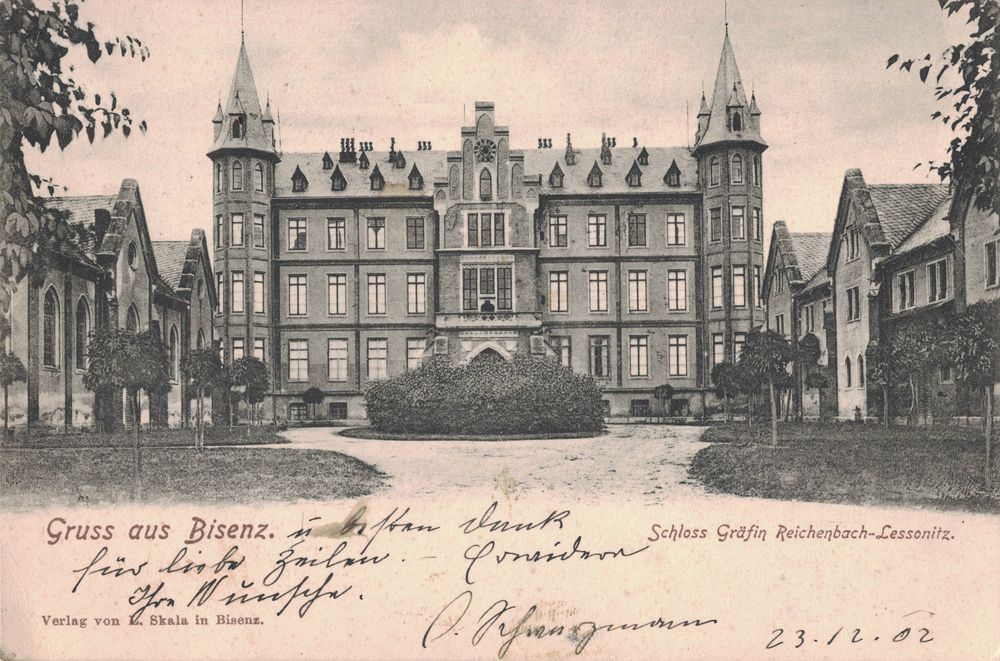 Gruss aus Bisenz. u besten Dank
für liebe Zeilen. –
Ihre Wünsche.
Schloss Gräfin Reichenbach-Lessonitz.
Verlag von L. Skala in Bisenz.
23.12.02